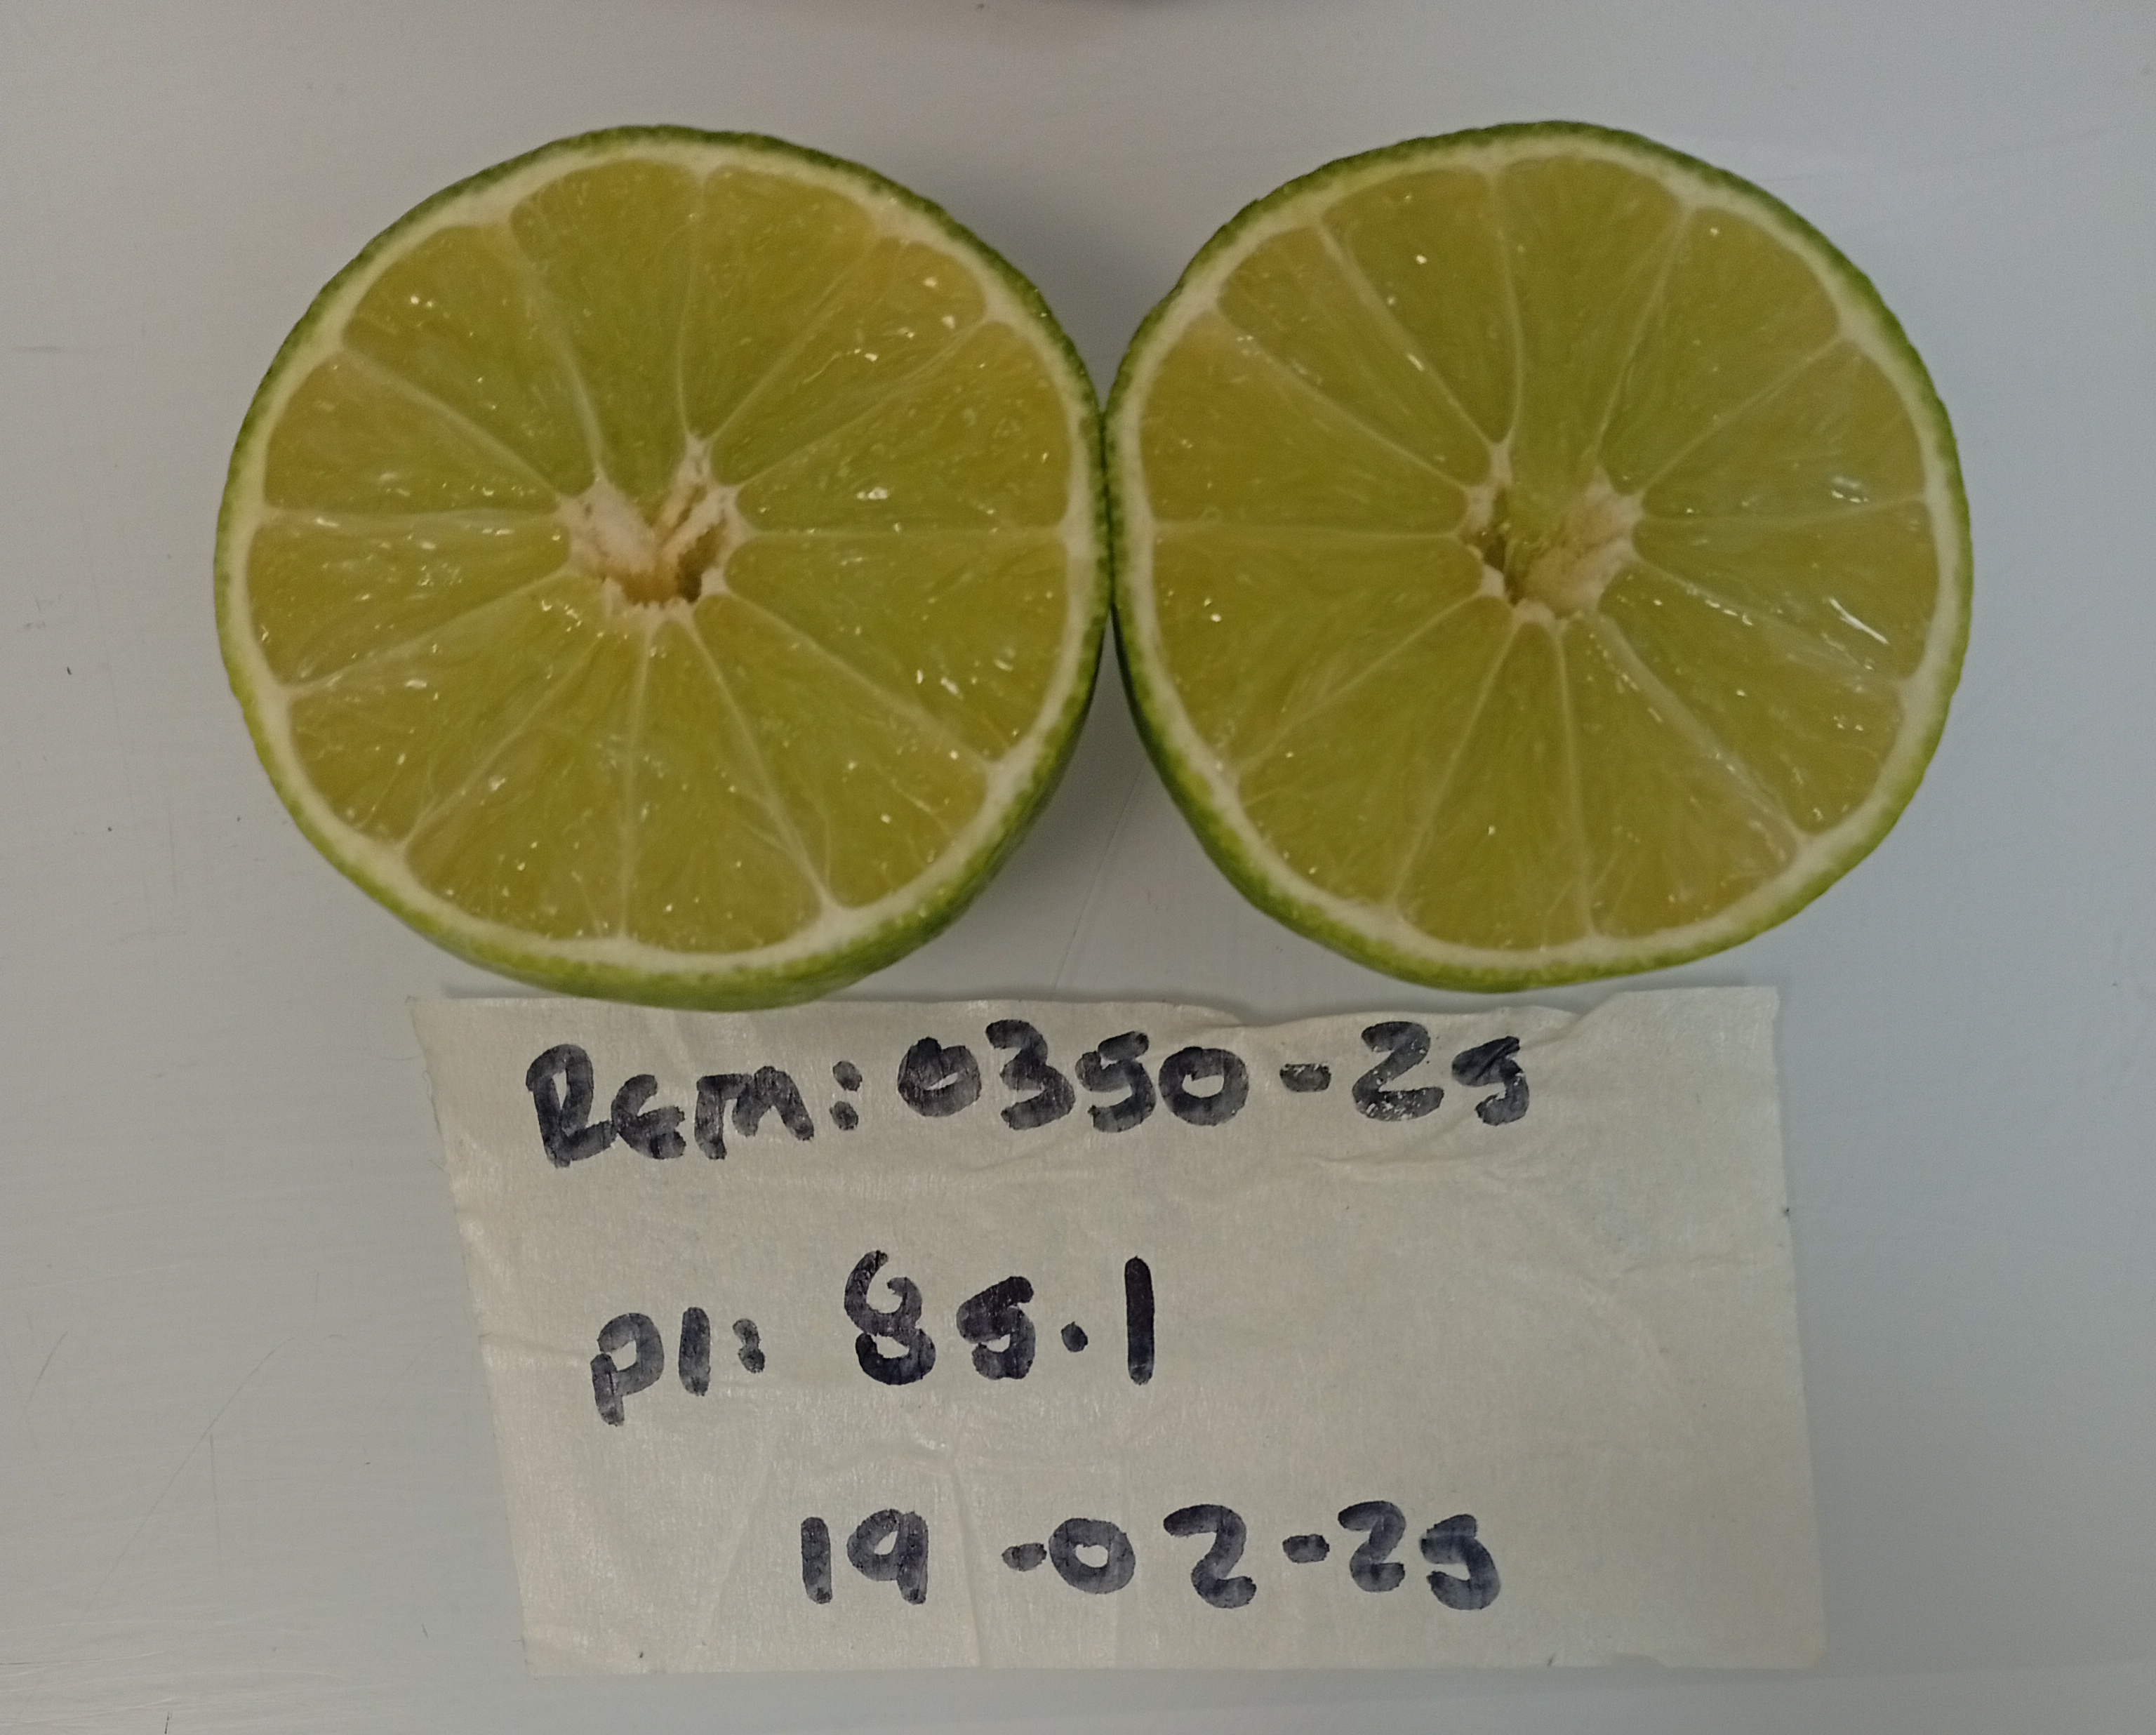 REM: 0350-25
PI: 85.1
19-02-25